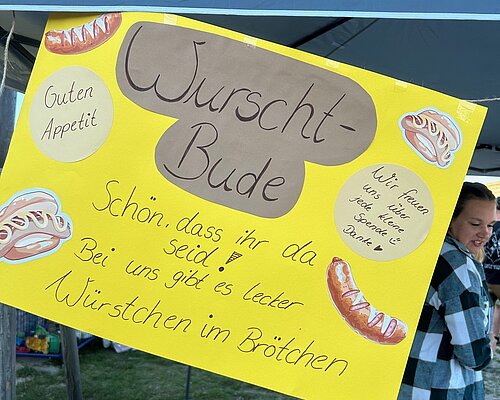 Wurscht-
Bude
Guten
Appetit
Wir freuen
uns über
jede kleine
Spende
Danke
Schön, dass ihr da
seid!
Bei uns gibt es lecker
Würstchen im Brötchen